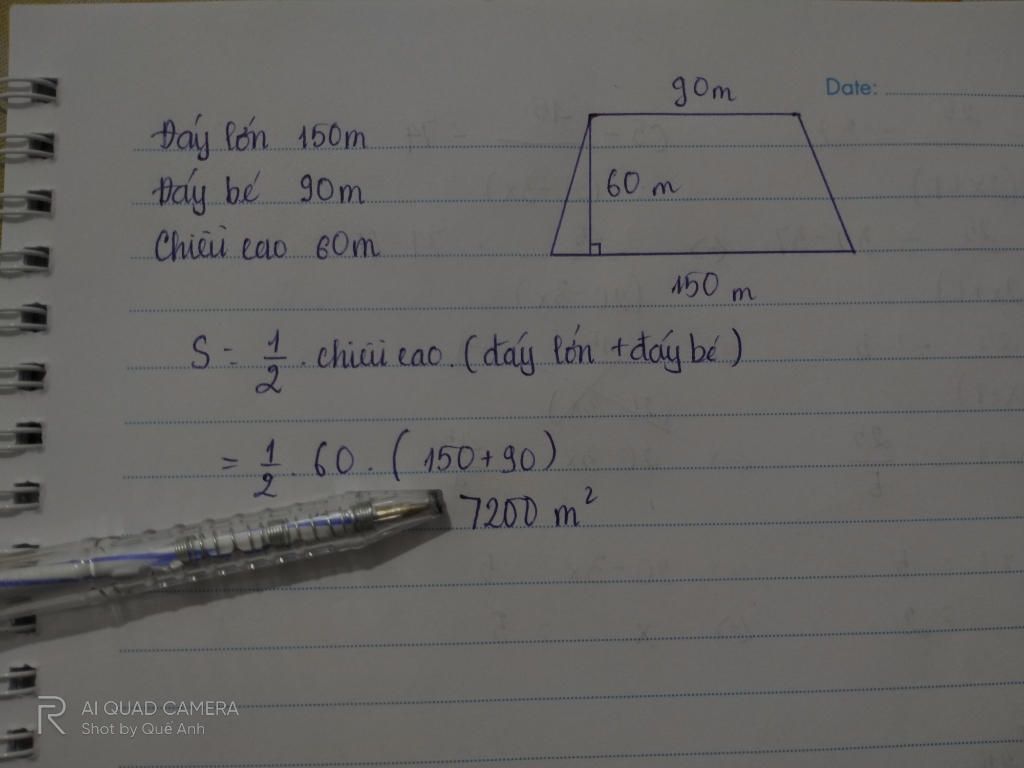 90m
Date:
Đáy lớn 150m
Đáy bé 90m
60 m
Chiều cao 60m
150 m
S = 1/2 . chiều cao . (đáy lớn + đáy bé)
= 1/2 . 60 . ( 150 + 90 )
7200 m²
AI QUAD CAMERA
Shot by Quế Anh